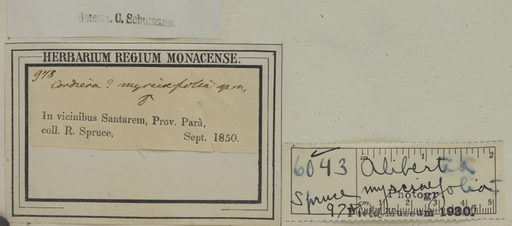 determ. C. Schumann
HERBARIUM REGIUM MONACENSE.
978
Cordiera? myrciæfolia
In vicinibus Santarem, Prov. Parà,
coll. R. Spruce, Sept. 1850.
6043 Alibertia
myrciaefolia
Spruce
Photogr
978
Field Museum 1930.